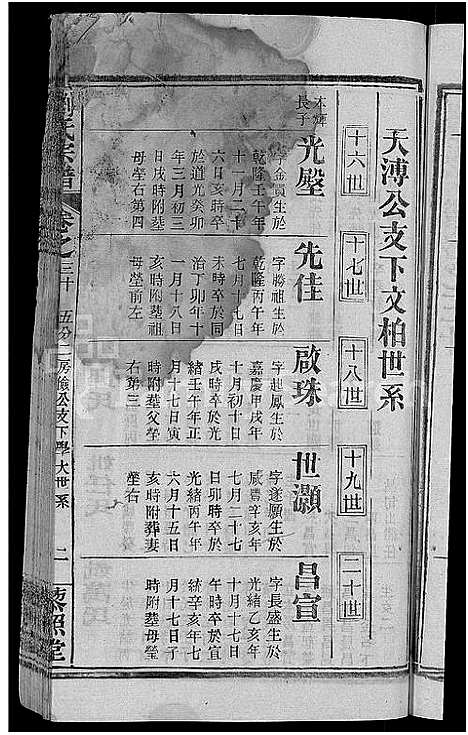 天溥公支下文柏世系
十六世
十七世
十八世
十九世
二十世
長子
光壂
字金質生於
乾隆壬午年
十一月二十
六日亥時卒
於道光癸卯
年三月初三
日戌時附墓
母塋右第四
先佳
字勝祖生於
乾隆丙午年
七月十九日
未時卒於同
治丁卯年十
一月十八日
亥時附墓祖
母塋前左
啟珠
字起鳳生於
嘉慶甲戌年
十月初十日
戌時卒於光
緒壬午年正
月十七日寅
時附墓父塋
右第三
世灝
字遂願生於
咸豐辛亥年
七月二十七
日卯時卒於
光緒丙午年
六月十五日
亥時附葬妻
塋右
昌宣
字長盛生於
光緒乙亥年
十月十七日
午時卒於宣
統辛亥年七
月十七日子
時附墓母塋
氏宗譜
卷之三十
五分二房儉公支下學大世系
二
藜照堂